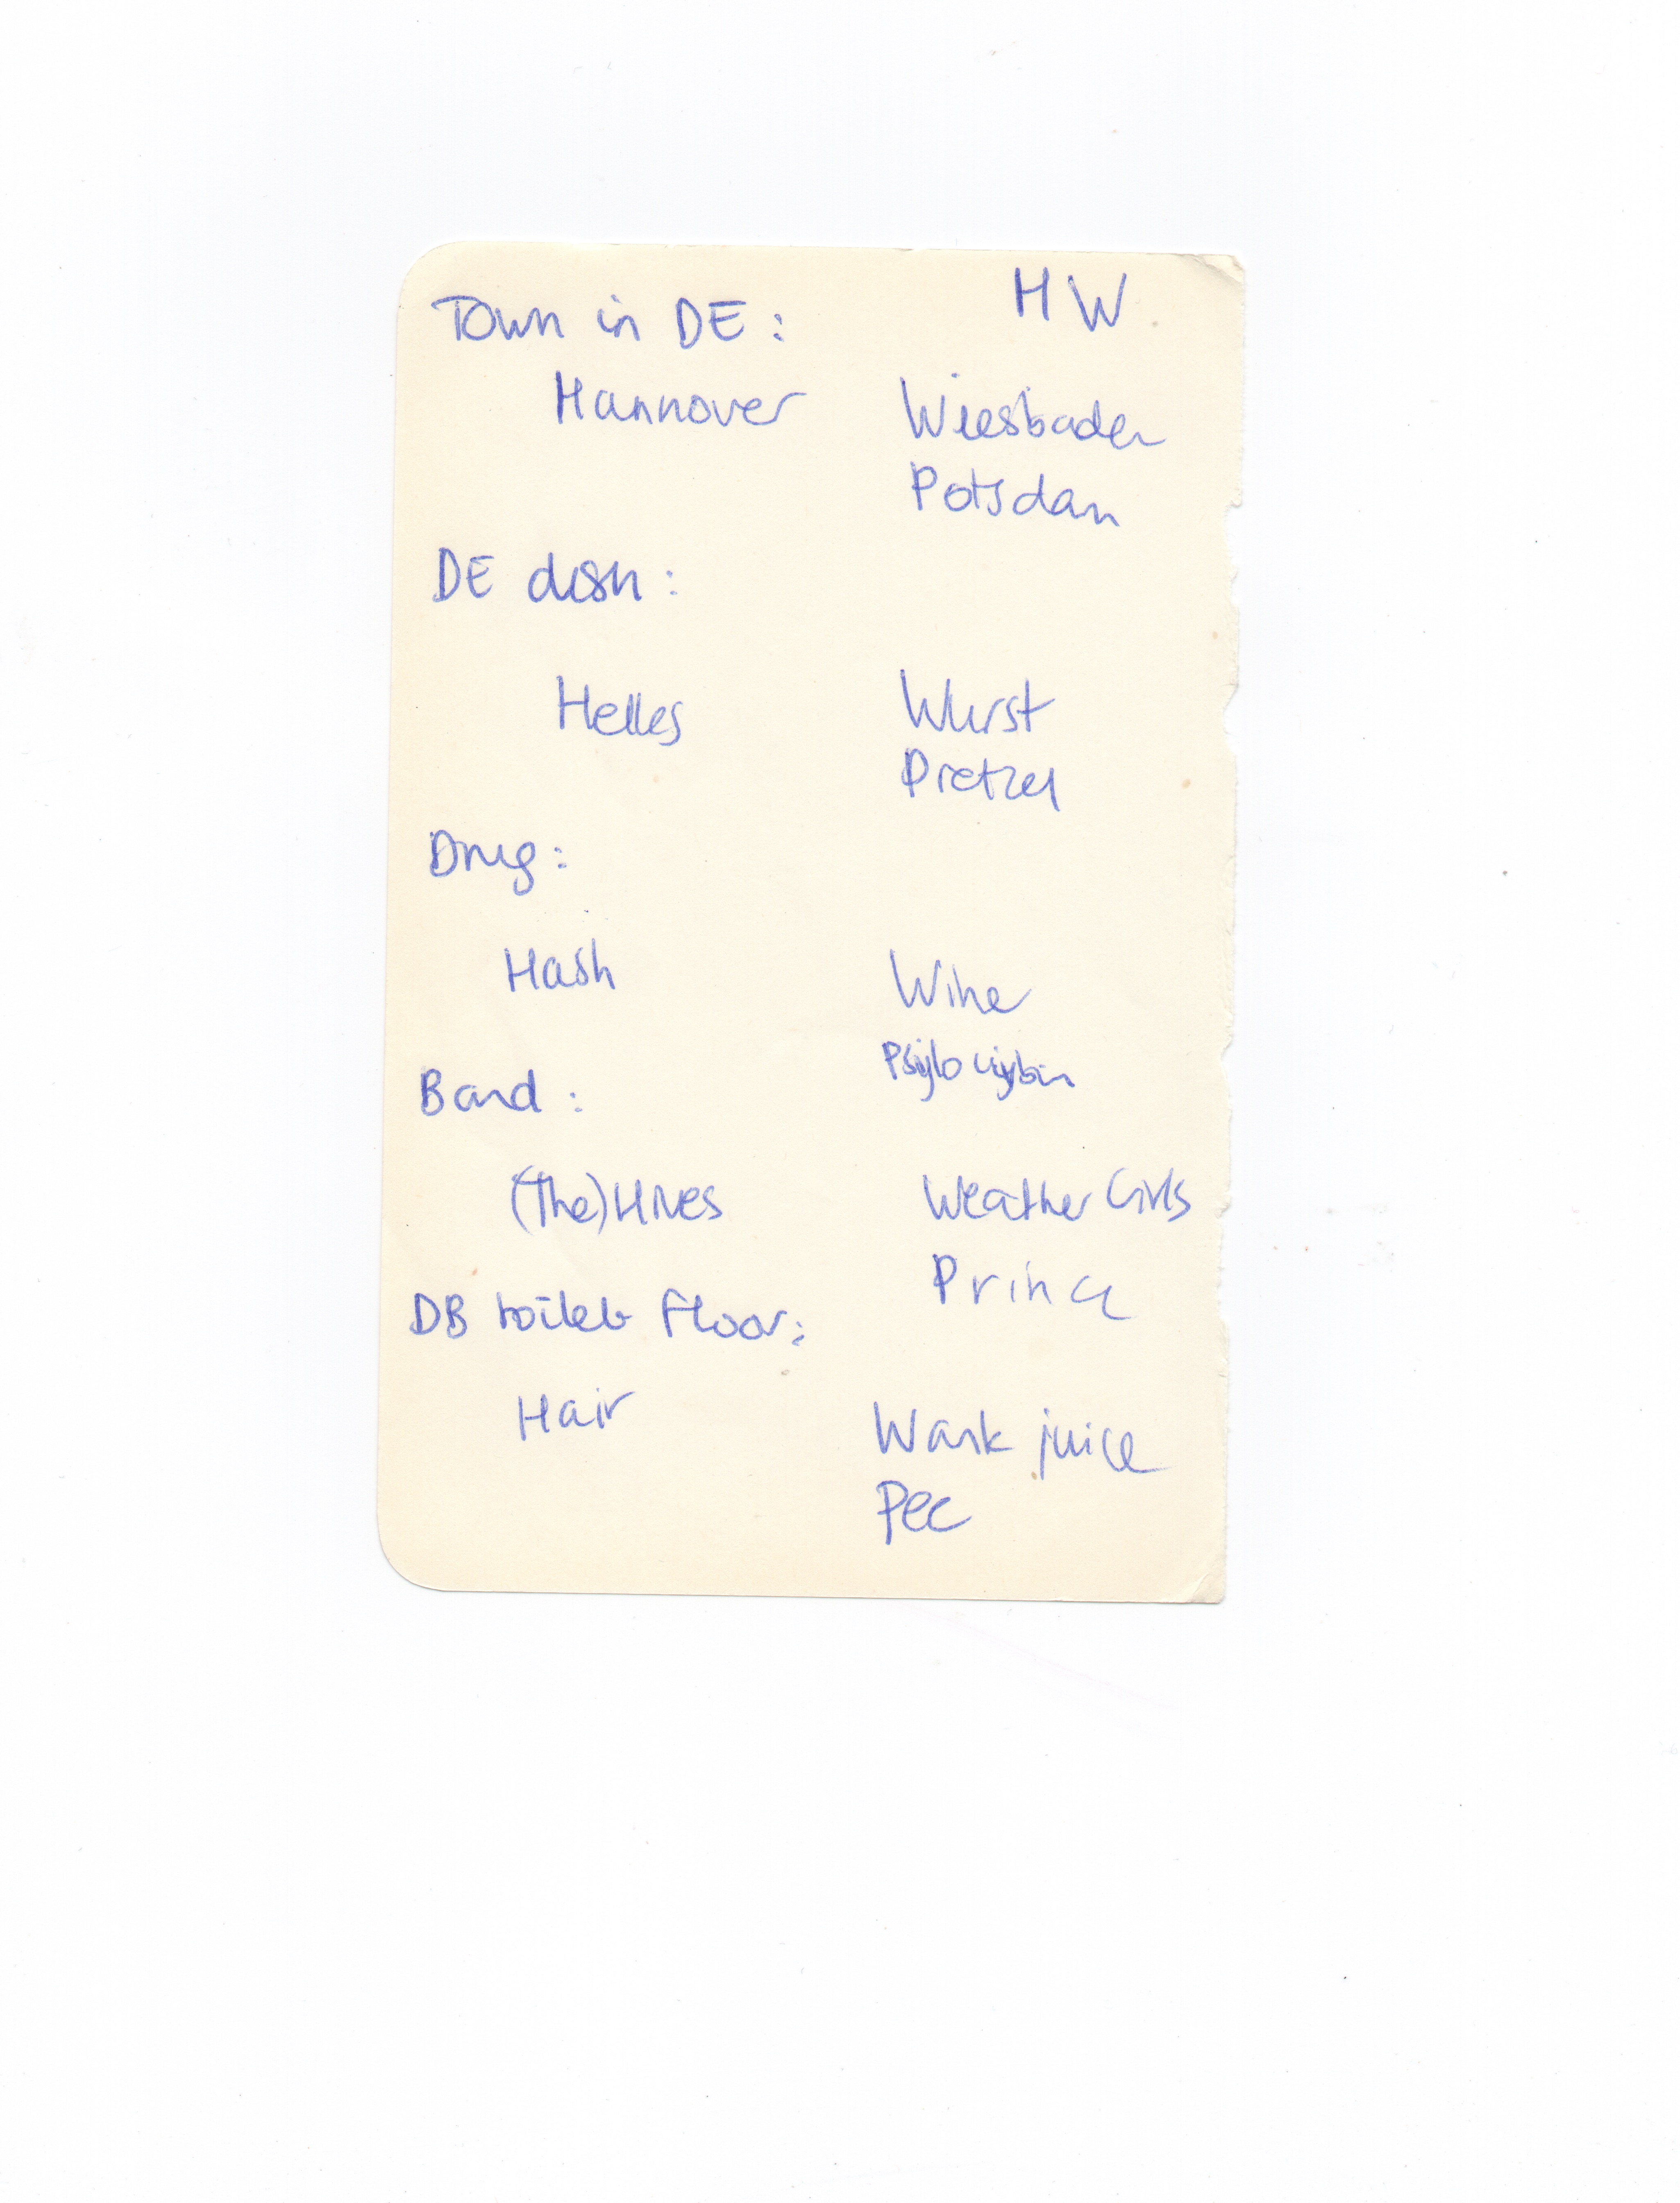 Town in DE: HW
Hannover Wiesbaden
Potsdam
DE dish:
Helles Wurst
Pretzel
Drug:
Hash Wine
Band:
(The) Hives Weather Girls
Prince
DB toilet floor:
Hair Wank juice
Pee